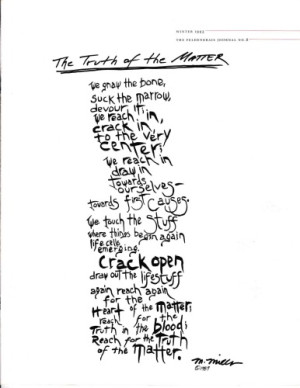 WINTER 1992
THE FELDENKRAIS JOURNAL NO. 8
The Truth of the MATTER
We gnaw the bone,
Suck the marrow,
devour it;
We reach in,
crack in,
to the very
center;
We reach in
draw in
Towards
ourselves—
towards first causes.
We touch the stuff
where things begin again
life cells
emerging.
Crack open
draw out the lifestuff
again reach again
for the
Heart of the matter;
reach for the
Truth in the blood;
Reach for the Truth
of the Matter.
M. Mills